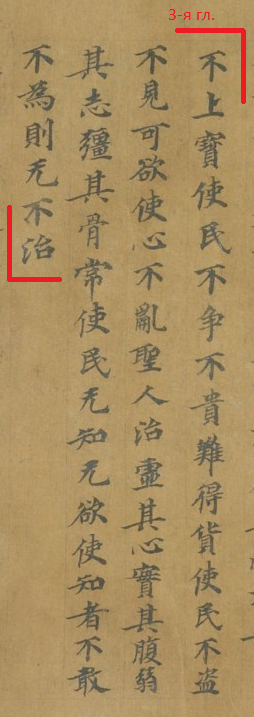 3-я гл.
不上寳使民不争不貴難得貨使民不盗
不見可欲使心不亂聖人治霊其心實其腹弱
其志彊其骨常使民无知无欲使知者不敢
不為則无不治